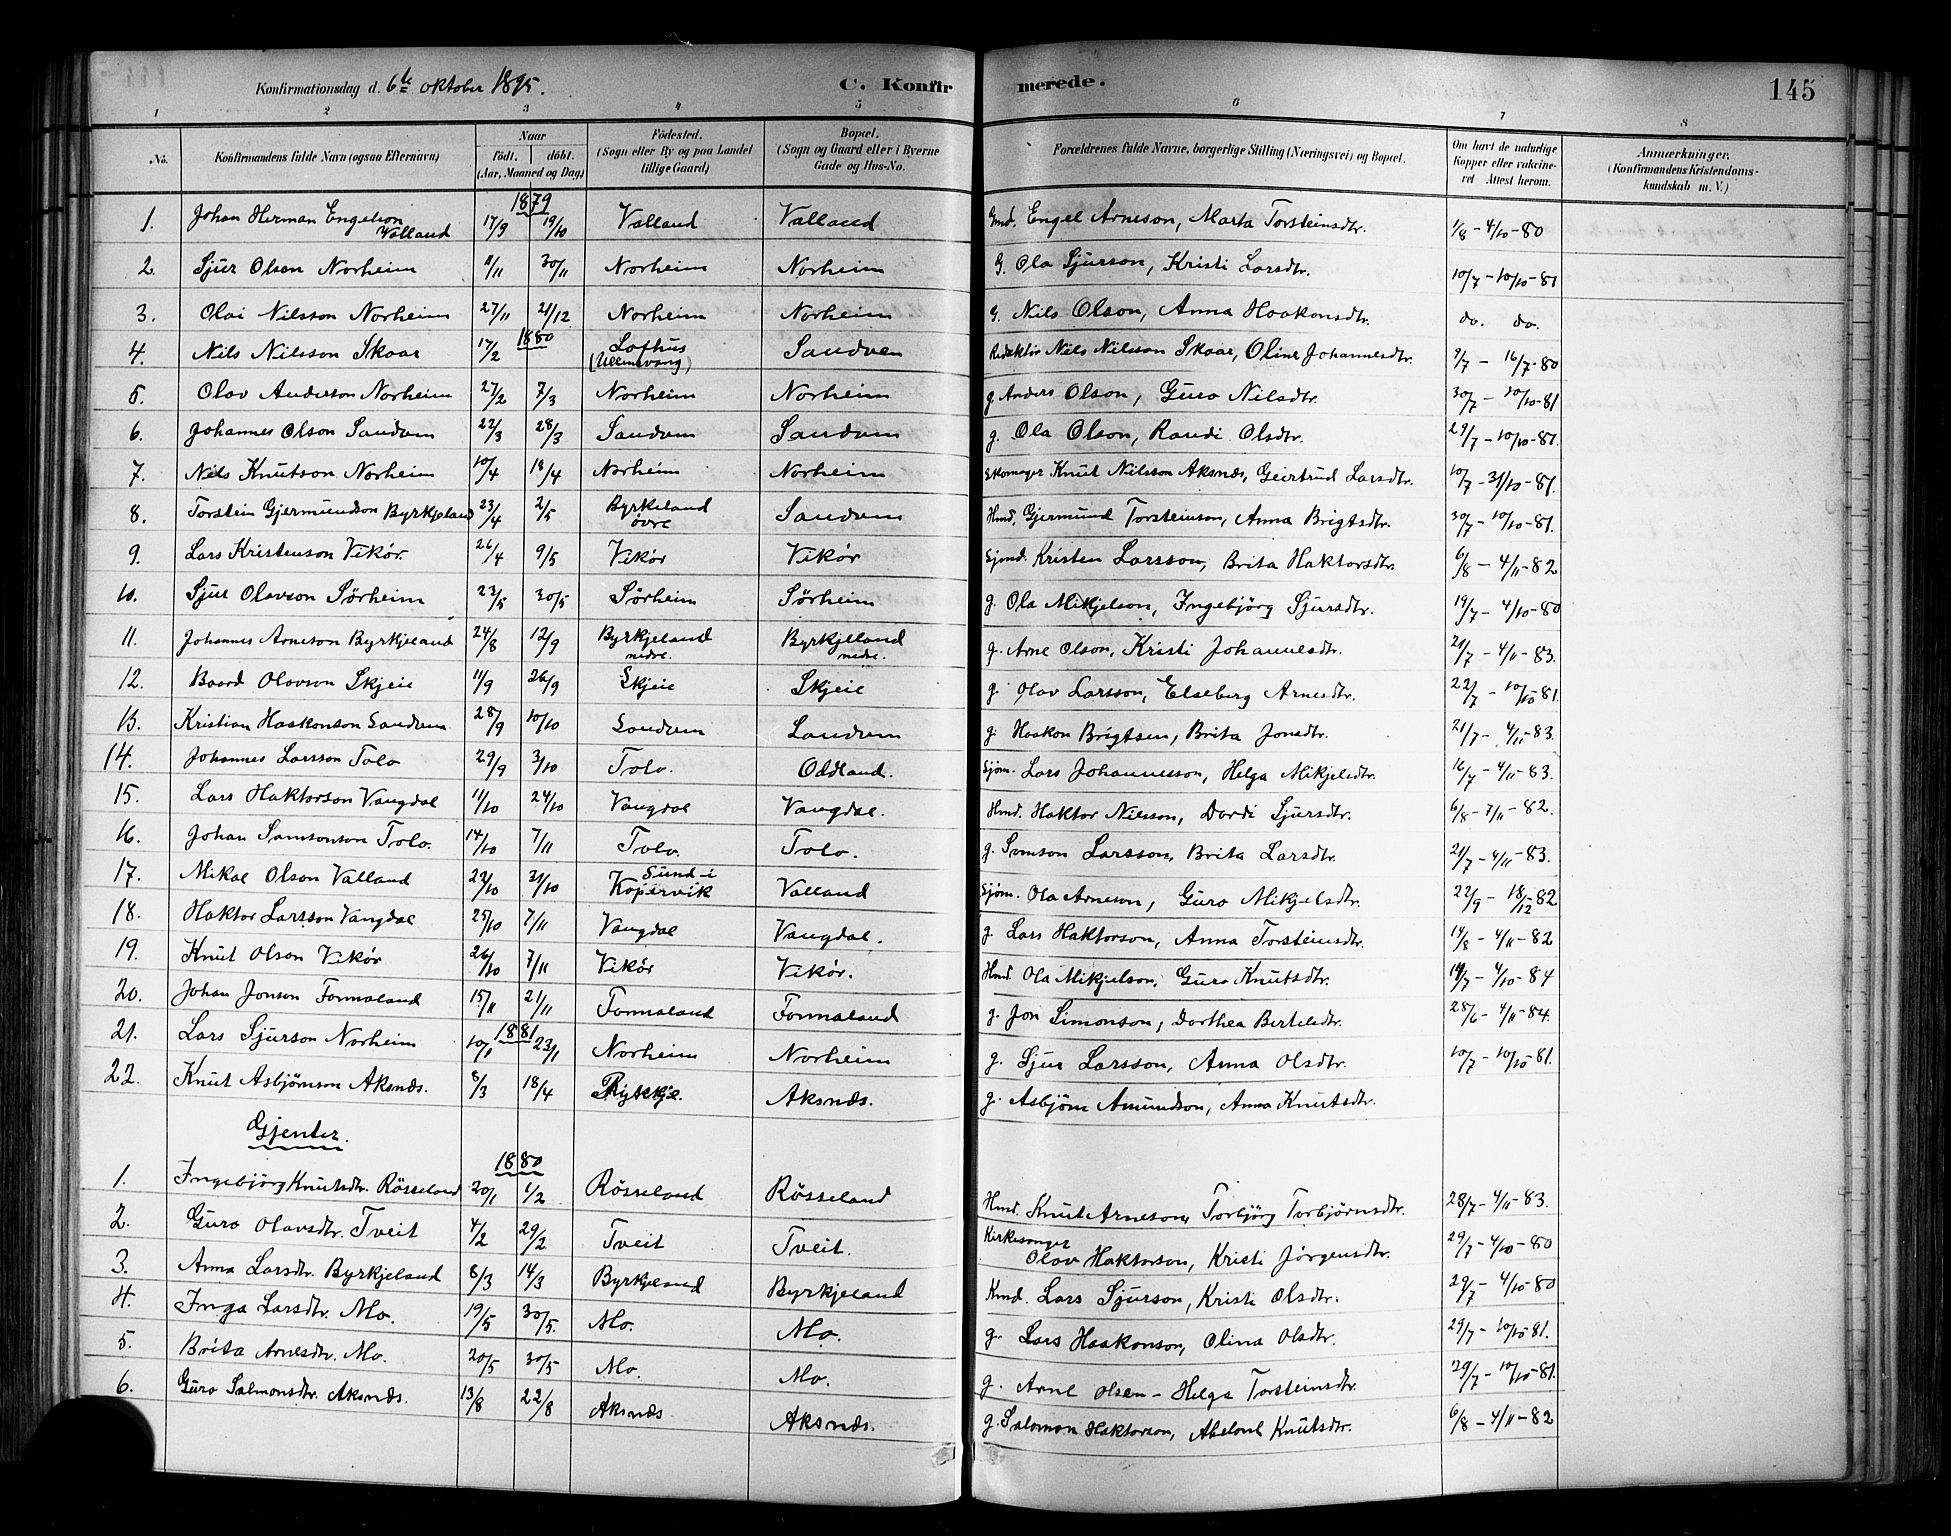 Konfirmationsdag d. 6te oktober 1895. C. Konfir merede. 145
1 2 3 4 5 6 7 8
No. Konfirmandens fulde Navn (ogsaa Efternavn) Naar födt. döbt. (Aar, Maaned og Dag) Födested. (Sogn eller By og paa Landet tillige Gaard) Bopæl. (Sogn og Gaard eller i Byerne Gade og Hus-No. Forældrenes fulde Navne, borgerlige Stilling (Næringsvei) og Bopæl. Om havt de naturlige Kopper eller vakcineret Attest herom. Anmærkninger. (Konfirmandens Kristendomskundskab m. V.)
1879
1. Johan Herman Engelson Valland 17/9 19/10 Valland Valland Gmd. Engel Arneson, Marta Torsteinsdtr. 1/8 - 4/10 - 80
2. Sjur Olsen Norheim 11/11 30/11 Norheim Norheim G. Ola Sjurson, Kristi Larsdtr. 10/7 - 10/10 - 81
3. Olai Nilsson Norheim 27/11 21/12 Norheim Norheim G. Nils Olson, Anna Haakonsdtr. do. do.
1880
4. Nils Nilsson Skaar 17/2 Lofthus (Ullensvang) Sandven Redaktör Nils Nilsson Skaar, Oline Johannesdtr. 9/7 - 16/7 - 80
5. Olav Anderson Norheim 27/2 7/3 Norheim Norheim g. Anders Olson, Guro Nilsdtr. 30/7 - 10/10 - 81
6. Johannes Olson Sandven 22/3 28/3 Sandven Sandven g. Ola Olson, Randi Olsdtr. 29/7 - 10/10 - 81
7. Nils Knutson Norheim 10/4 18/4 Norheim Norheim Skomager Knut Nilsson Aksnæs, Geirtrud Larsdtr. 10/7 - 31/10 - 81
8. Torstein Gjermundson Byrkjeland 23/4 2/5 Byrkeland övre Sandven Hmd. Gjermund Torsteinson, Anna Brigtsdtr. 30/7 - 10/10 - 81
9. Lars Kristenson Vikör. 26/4 9/5 Vikör Vikör Sjmd. Kristen Larsson, Brita Haktorsdtr. 6/8 - 4/11 - 82
10. Sjur Olavson Sörheim 23/5 30/5 Sörheim Sörheim g. Ola Mikjelson, Ingebjörg Sjursdtr. 19/7 - 4/10 - 80
11. Johannes Arneson Byrkjeland 24/8 12/9 Byrkjeland nedre. Byrkjeland nedre. g. Arne Olson, Kristi Johannesdtr. 21/7 - 4/11 - 83.
12. Baard Olavson Skjeie 11/9 26/9 Skjeie Skjeie g. Olav Larsson, Elseberg Arnesdtr. 22/7 - 10/10 - 81.
13. Kristian Haakonson Sandven 28/9 10/10 Sandven Sandven g. Haakon Brigtsen, Brita Jonsdtr. 21/7 - 4/11 - 83.
14. Johannes Larsson Tolo 29/9 3/10 Tolo. Oddland. Sjöm. Lars Johannesson, Helga Mikjelsdtr. 16/7 - 4/11 - 83.
15. Lars Haktorson Vangdal 11/10 24/10 Vangdal Vangdal. Hmd. Haktor Nilsson, Dordi Sjursdtr. 6/8 - 7/11 - 82.
16. Johan Samsonson Tolo. 14/10 7/11 Tolo. Tolo. g. Samson Larsson, Brita Larsdtr. 21/7 - 4/11 - 83.
17. Mikal Olson Valland 22/10 31/10 Sund-i Kopervik Valland Sjöm. Ola Arneson, Guro Mikjelsdtr. 22/9 - 18/12 - 82
18. Haktor Larsson Vangdal 25/10 7/11 Vangdal Vangdal. g. Lars Haktorson, Anna Torsteinsdtr. 14/8 - 4/11 - 82
19. Knut Olson Vikör 26/10 7/11 Vikör Vikör. Hmd. Ola Mikjelson, Guro Knutsdtr. 19/7 - 4/10 - 84
20. Johan Jonson Formaland 15/11 21/11 Formaland Formaland g. Jon Simonson, Dorthea Bertelsdtr. 28/6 - 4/11 - 84.
1881
21. Lars Sjurson Norheim 10/1 23/1 Norheim Norheim g. Sjur Larsson, Anna Olsdtr. 10/7 - 10/10 - 81.
22. Knut Asbjörnson Aksnæs. 8/3 18/4 Aksnæs. g. Asbjörn Amundson, Anna Knutsdtr.
Gjenter.
1880
1. Ingebjörg Knutsdtr. Rösseland 20/1 1/2 Rösseland Rösseland Hmd. Knut Arneson, Torbjörg Torbjörnsdtr. 28/7 - 4/11 - 83.
2. Guro Olavsdtr. Tveit 4/2 29/2 Tveit Tveit. Kirkesanger Olav Haktorson, Kristi Jörgensdtr. 29/7 - 4/10 - 80
3. Anna Larsdtr. Byrkjeland 8/3 14/3 Byrkjeland Byrkjeland Kmd. Lars Sjurson, Kristi Olsdtr. 29/7 - 4/10 - 80
4. Inga Larsdtr. Mo. 19/5 30/5. Mo. Mo. g. Lars Haakonson, Olina Olsdtr. 29/7 - 10/10 - 81.
5. Brita Arnesdtr. Mo. 20/5 30/5 Mo. Mo. g. Arne Olsen - Helga Torsteinsdtr. 29/7 - 10/10 - 81.
6. Guro Salmonsdtr. Aksnæs. 13/8 22/8 Aksnæs Aksnæs. g. Salomon Haktorson, Abelone Knutsdtr. 6/8 - 4/11 - 82